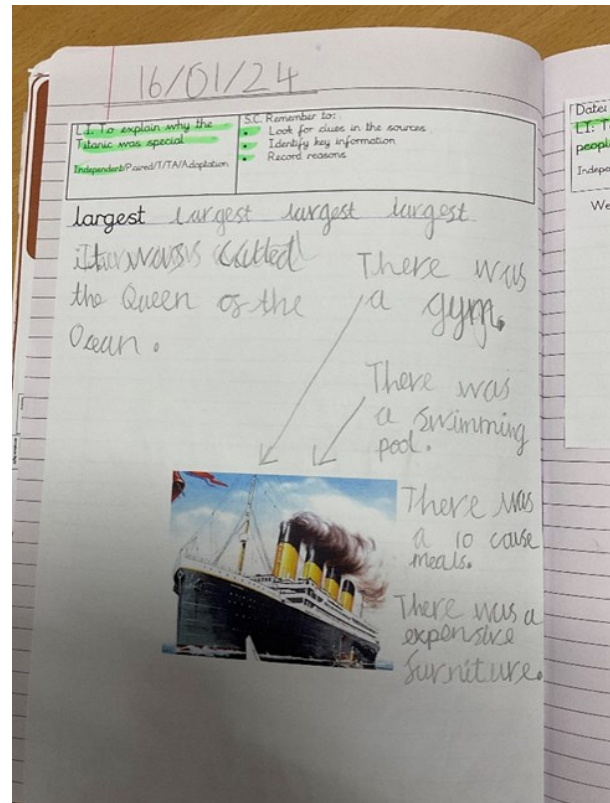 16/01/24
L.I. To explain why the
Titanic was special
Independent/Paired/T/TA/Adaptation
S.C. Remember to:
• Look for clues in the sources
• Identify key information
• Record reasons
largest largest largest largest
It was called
the Queen of the
Ocean.
There was
a gym.
There was
a swimming
pool.
There was
a 10 cause
meals.
There was a
expensive
furniture.
Date:
LI: T
peopl
Indepe
We